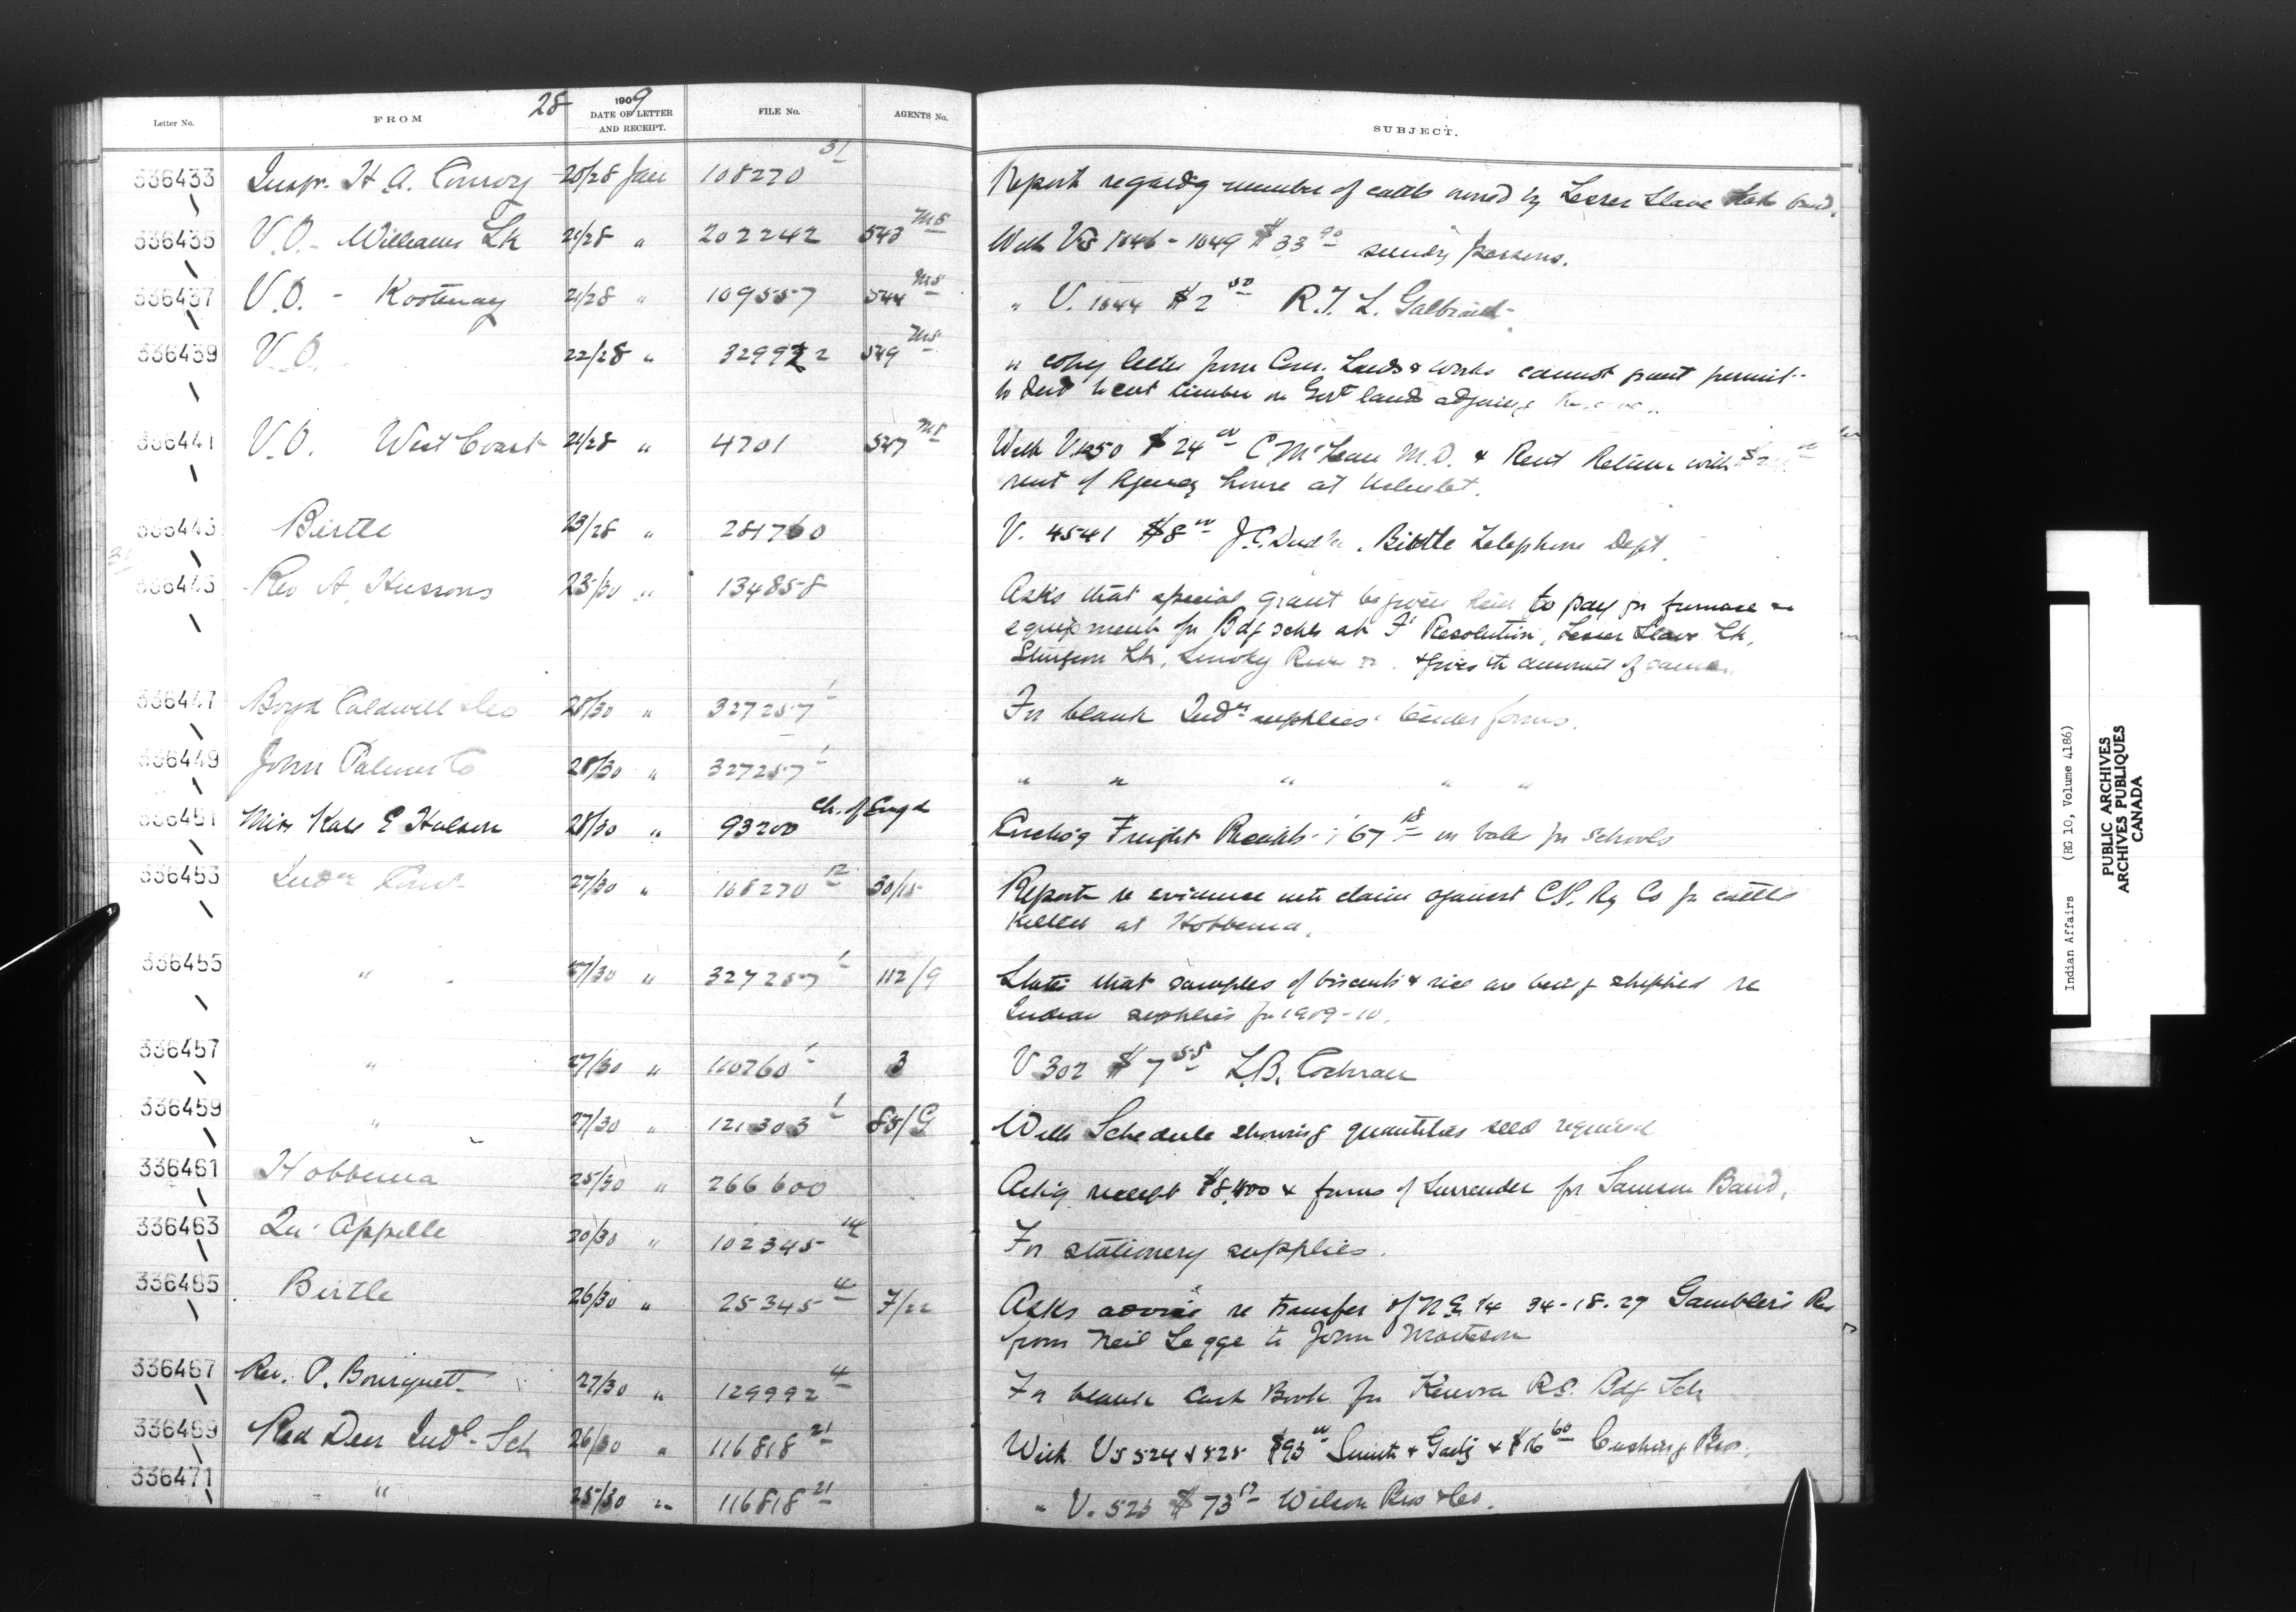 28 1909
Letter No. FROM DATE OF LETTER AND RECEIPT. FILE No. AGENTS No. SUBJECT.
336433 Inspr. H. A. Conroy 20/28 Jan 108270 31 Report regard'g number of cattle owned by Lesser Slave Lake band.
336435 V.O. - Williams Lk 21/28 " 202242 543 M8 With Vs 1046 - 1049 $33 90 sundry persons.
336437 V.O. - Kootenay 21/28 " 109557 544 M8 " V. 1044 $2 50 R. T. L. Galbraith
336439 V.O. 22/28 " 329922 549 M8 " copy letter from Com. Lands & Works cannot grant permit
to Ind to cut timber on Govt lands adjoining
336441 V.O. West Coast 21/28 " 4701 547 M8 With V.1050 $24 00 C McLean M.D. & Rent Return with
rent of Agency house at Ucluelet.
336443 Birtle 23/28 " 281760 V. 4541 $8 00 J.C. Birtle Telephone Dept.
336445 Rev A. Hussons 25/30 " 134858 Asks that special grant be given him to pay for furnace &
equipment for Bdg schls at Ft Resolution, Lesser Slave Lk,
Sturgeon Lk, Smoky River & gives the amount of same.
336447 Boyd Caldwell & Co 28/30 " 327257 1 For blank Indn supplies tender forms.
336449 John Palmer Co 28/30 " 327257 1 " " " " "
336451 Miss Kate E Halson 28/30 " 93200 Ch. of Engd Enclos'g Freight Receipts 67 18 on bale for schools
336453 Indn Comr 27/30 " 168270 12 30/15 Report re evidence claim against C.P. Ry Co for cattle
killed at Hobbema.
336455 " 27/30 " 327257 1 112/9 States that samples of biscuits & rice are being shipped re
Indian supplies for 1909-10.
336457 " 27/30 " 110760 1 3 V 302 $7 55 L.B. Cochran
336459 " 27/30 " 121303 1 85/G With Schedule showing quantities seed required
336461 Hobbema 25/30 " 266600 Ack'g receipt $8,400 & forms of Surrender for Samson Band.
336463 Qu'Appelle 20/30 " 102345 14 For stationery supplies.
336465 Birtle 26/30 " 25345 4 7/22 Asks advice re transfer of N.E. 1/4 34-18-29 Gambler's Res
from Neil Legge to John
336467 Rev. P. Bousquet 27/30 " 129992 4 For blank Cash Book for Kenora R.C. Bdg Sch
336469 Red Deer Indl. Sch 26/30 " 116818 21 With Vs 524 & 525 $93 00 Smith & Gaetz & $16 60 Cushing Bros.
336471 " 25/30 " 116818 21 " V. 523 $73 17 Wilson Bros & Co.
Indian Affairs (RG 10, Volume 4186)
PUBLIC ARCHIVES
ARCHIVES PUBLIQUES
CANADA